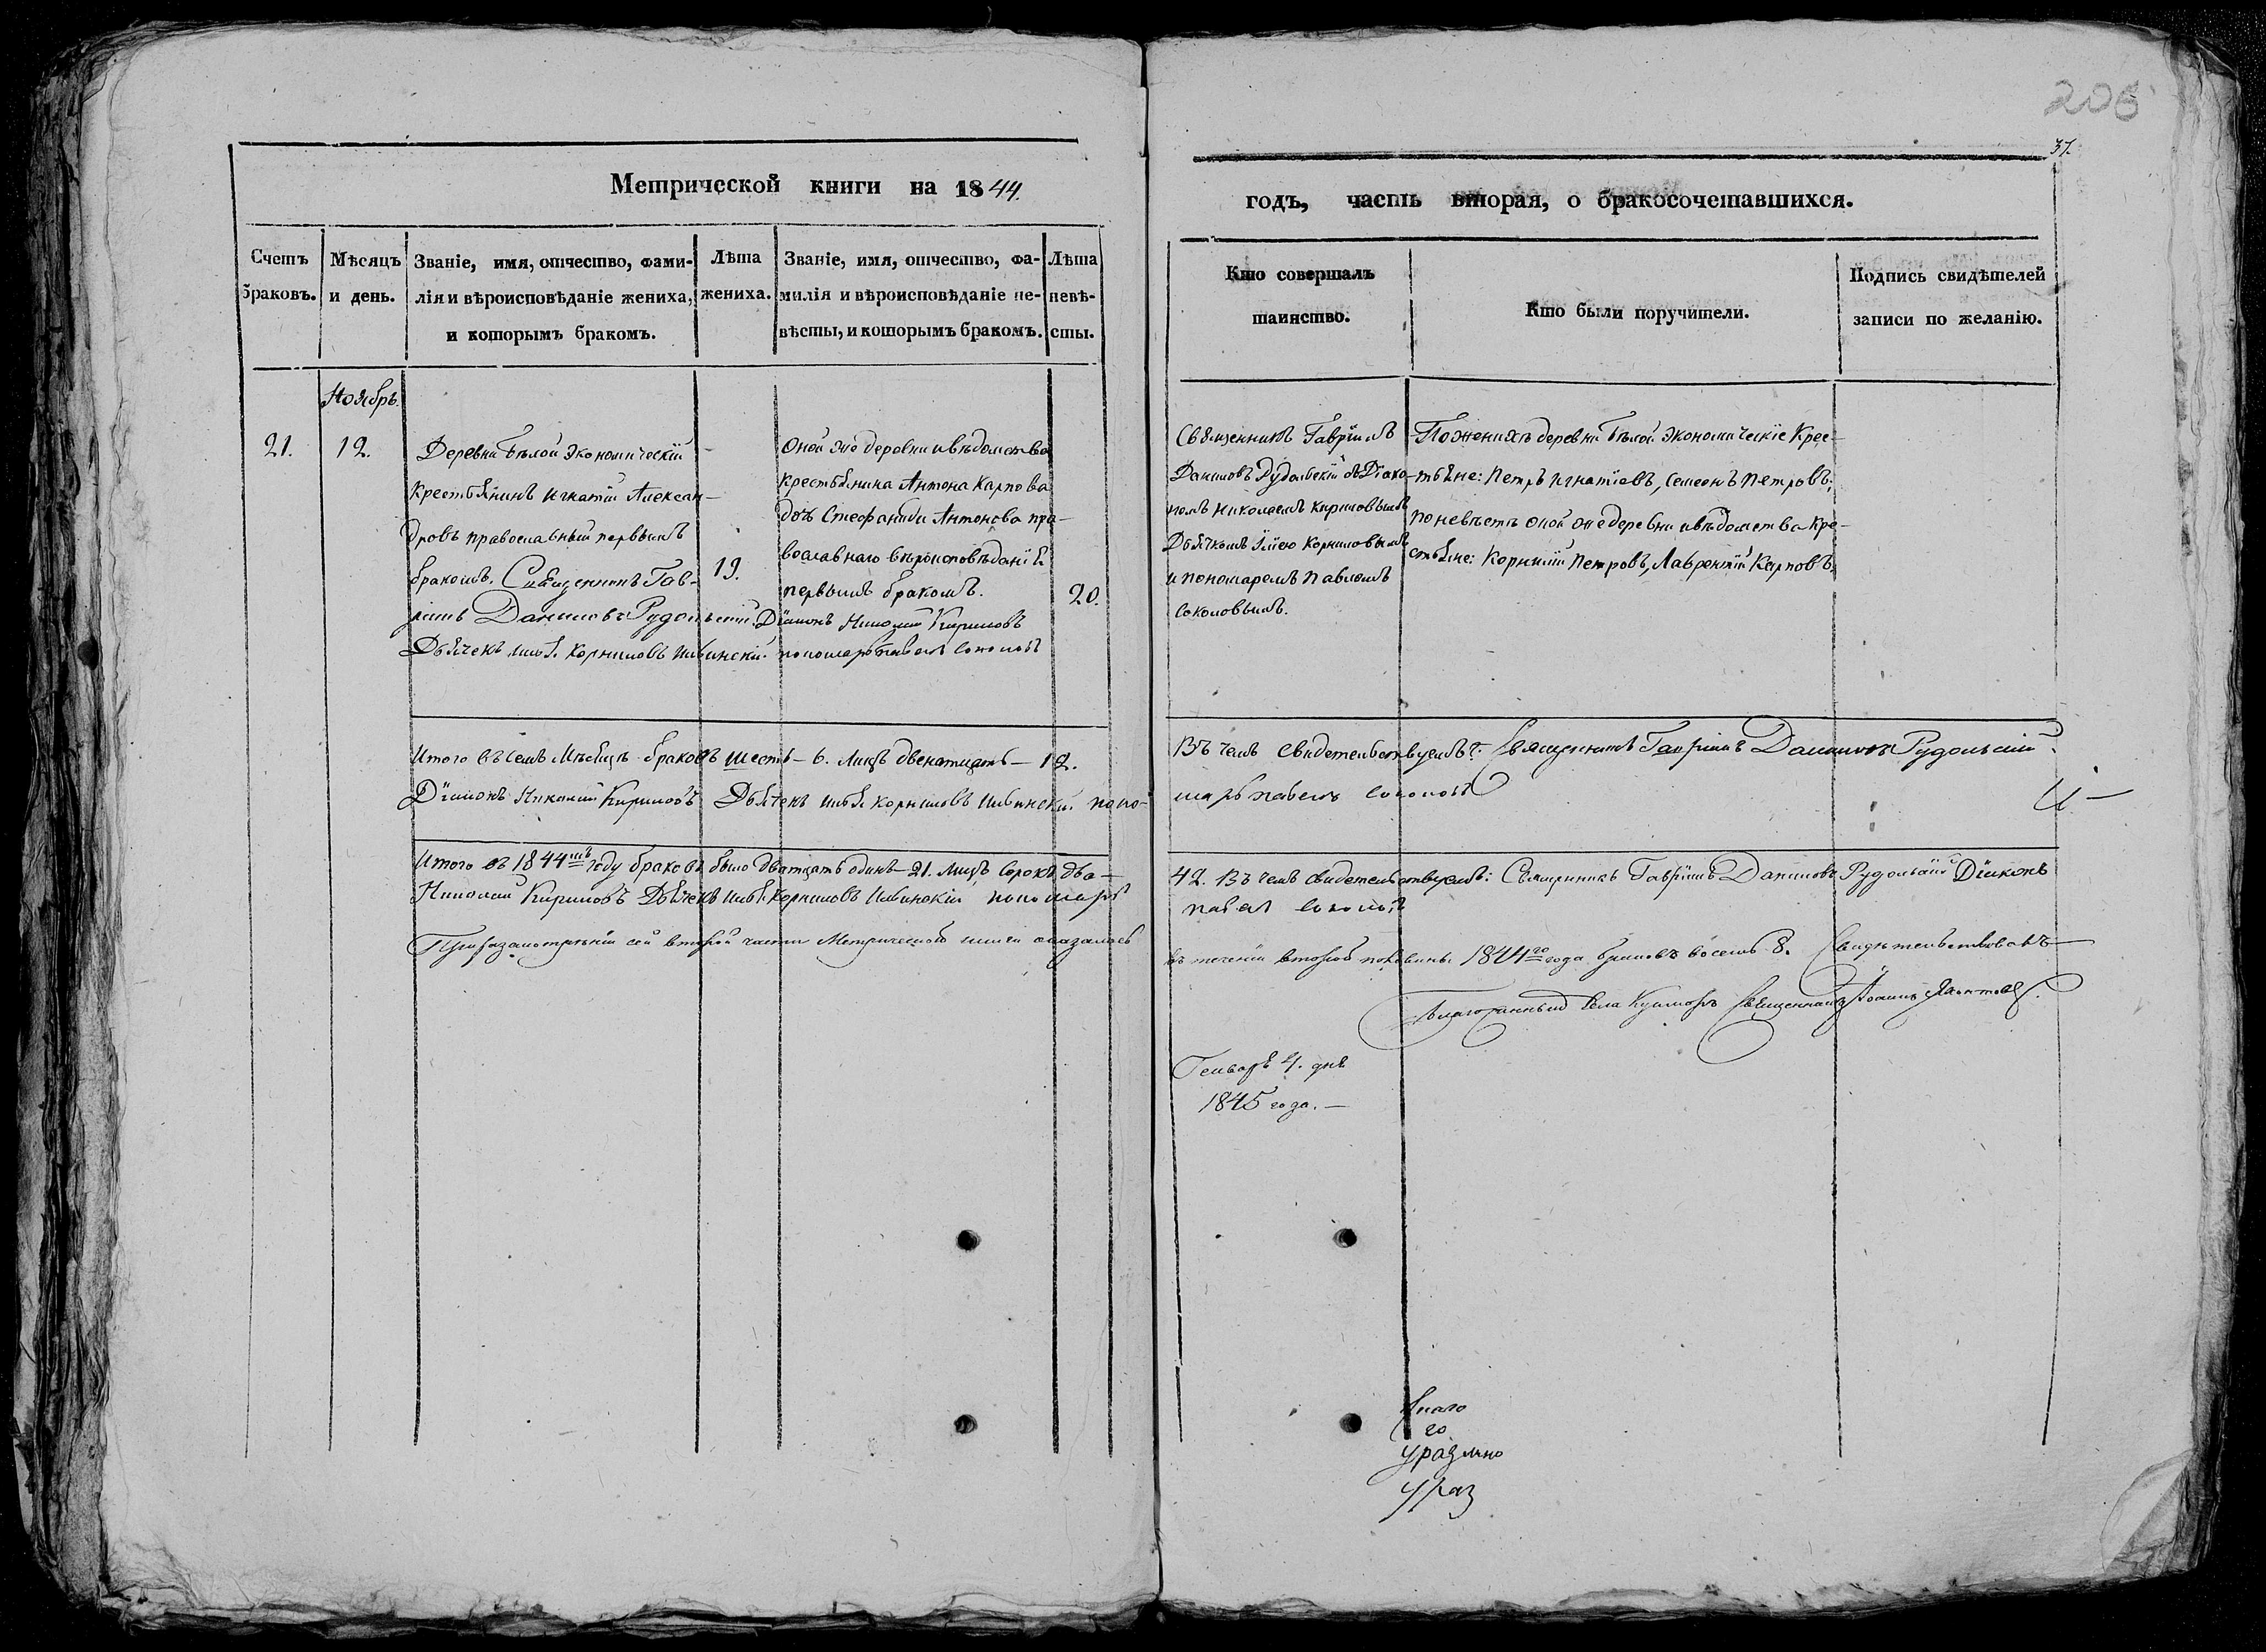 206
37.
Метрической книги на 1844.
годъ, часть вторая, о бракосочетавшихся.
Счетъ
браковъ.
Мѣсяцъ
и день.
Званіе, имя, отчество, фами-
лія и вѣроисповѣданіе жениха,
и которымъ бракомъ.
Лѣта
жениха.
Званіе, имя, отчество, фа-
милія и вѣроисповѣданіе не-
вѣсты, и которымъ бракомъ.
Лѣта
невѣ-
сты.
Кто совершалъ
таинство.
Кто были поручители.
Подпись свидѣтелей
записи по желанію.
Ноябрь.
21.
12.
Деревни Бѣлой экономическій
крестьянинъ Игнатій Алексан-
дровъ православный первымъ
бракомъ.
19.
Оной же деревни и вѣдомства
крестьянина Антона Карпова
дочь Стефанида Антонова пра-
вославнаго вѣроисповѣданія
первымъ бракомъ.
20.
Священникъ Гав-
ріилъ Даниловъ Рудольскій Діаконъ Николай Кириловъ
Дьячекъ Илья Корниловъ Ильинскій пономарь Павелъ Соколовъ
Священникъ Гавріилъ
Даниловъ Рудольскій съ Діако-
номъ Николаемъ Кириловымъ
Дьячкомъ Ильею Корниловымъ
и пономаремъ Павломъ
Соколовымъ.
По женихѣ деревни Бѣлой экономическіе Крес-
тьяне: Петръ Игнатіевъ, Семенъ Петровъ;
по невѣстѣ оной же деревни и вѣдомства кре-
стьяне: Корнилій Петровъ, Лаврентій Карповъ.
Итого въ семъ Мѣсяцѣ браковъ шесть – 6. Лицъ двенатцать – 12.
Діаконъ Николай Кириловъ Дьячекъ Илья Корниловъ Ильинскій поно-
Въ чемъ свидетельствуемъ: Священникъ Гавріилъ Даниловъ Рудольскій
марь Павелъ Соколовъ
Итого въ 1844мъ году браковъ было дватцать одинъ – 21. Лицъ сорокъ два –
Николай Кириловъ Дьячекъ Илья Корниловъ Ильинскій пономарь
42. Въ чемъ свидетельствуемъ: Священникъ Гавріилъ Даниловъ Рудольскій Діаконъ
Павелъ Соколовъ
При разсмотреніи сей второй части Метрической книги оказалось
въ теченіи второй половины 1844го года браковъ восемь 8. Свидѣтельствовалъ
Благочинный села Священникъ Іоаннъ
Генваря 4. дня
1845 года. –